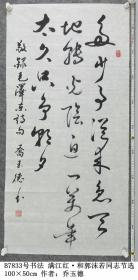 多少事從來急天
地轉光陰迫一萬年
太久只争朝夕
敬録毛澤东詩句 喬玉德书
B7833号书法 满江红·和郭沫若同志节选
100×50cm 作者：乔玉德